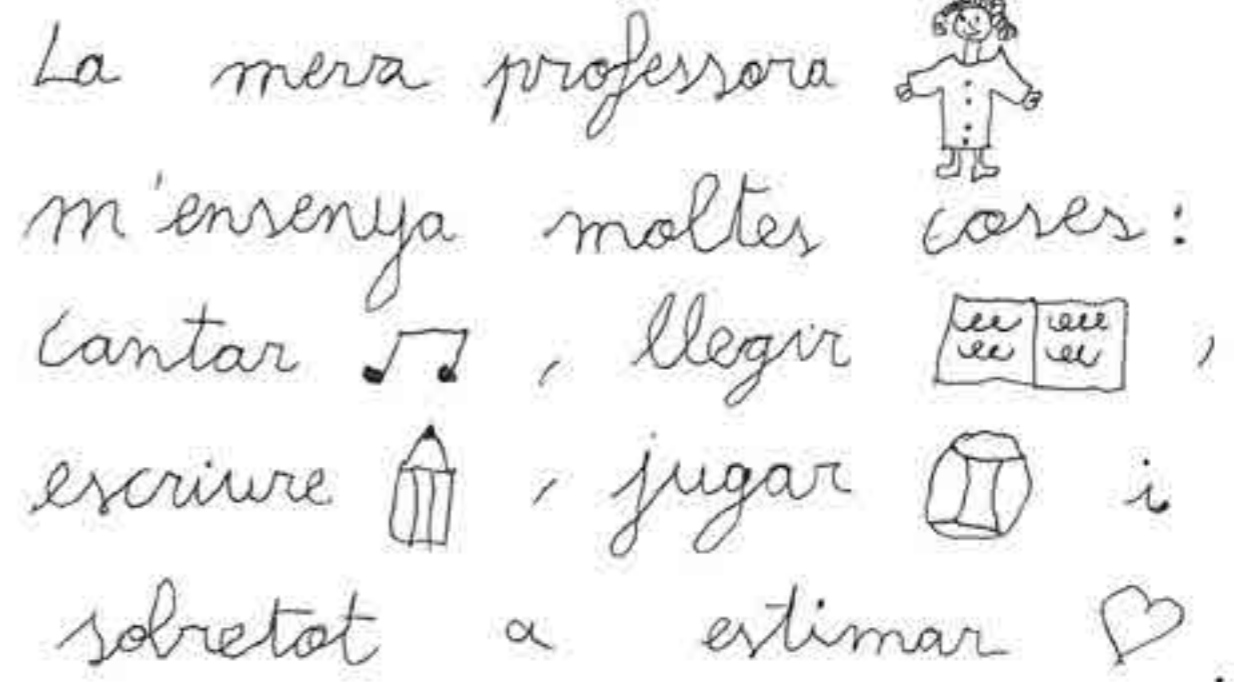 La meva professora
m'ensenya moltes coses:
cantar, llegir,
escriure, jugar i
sobretot a estimar.